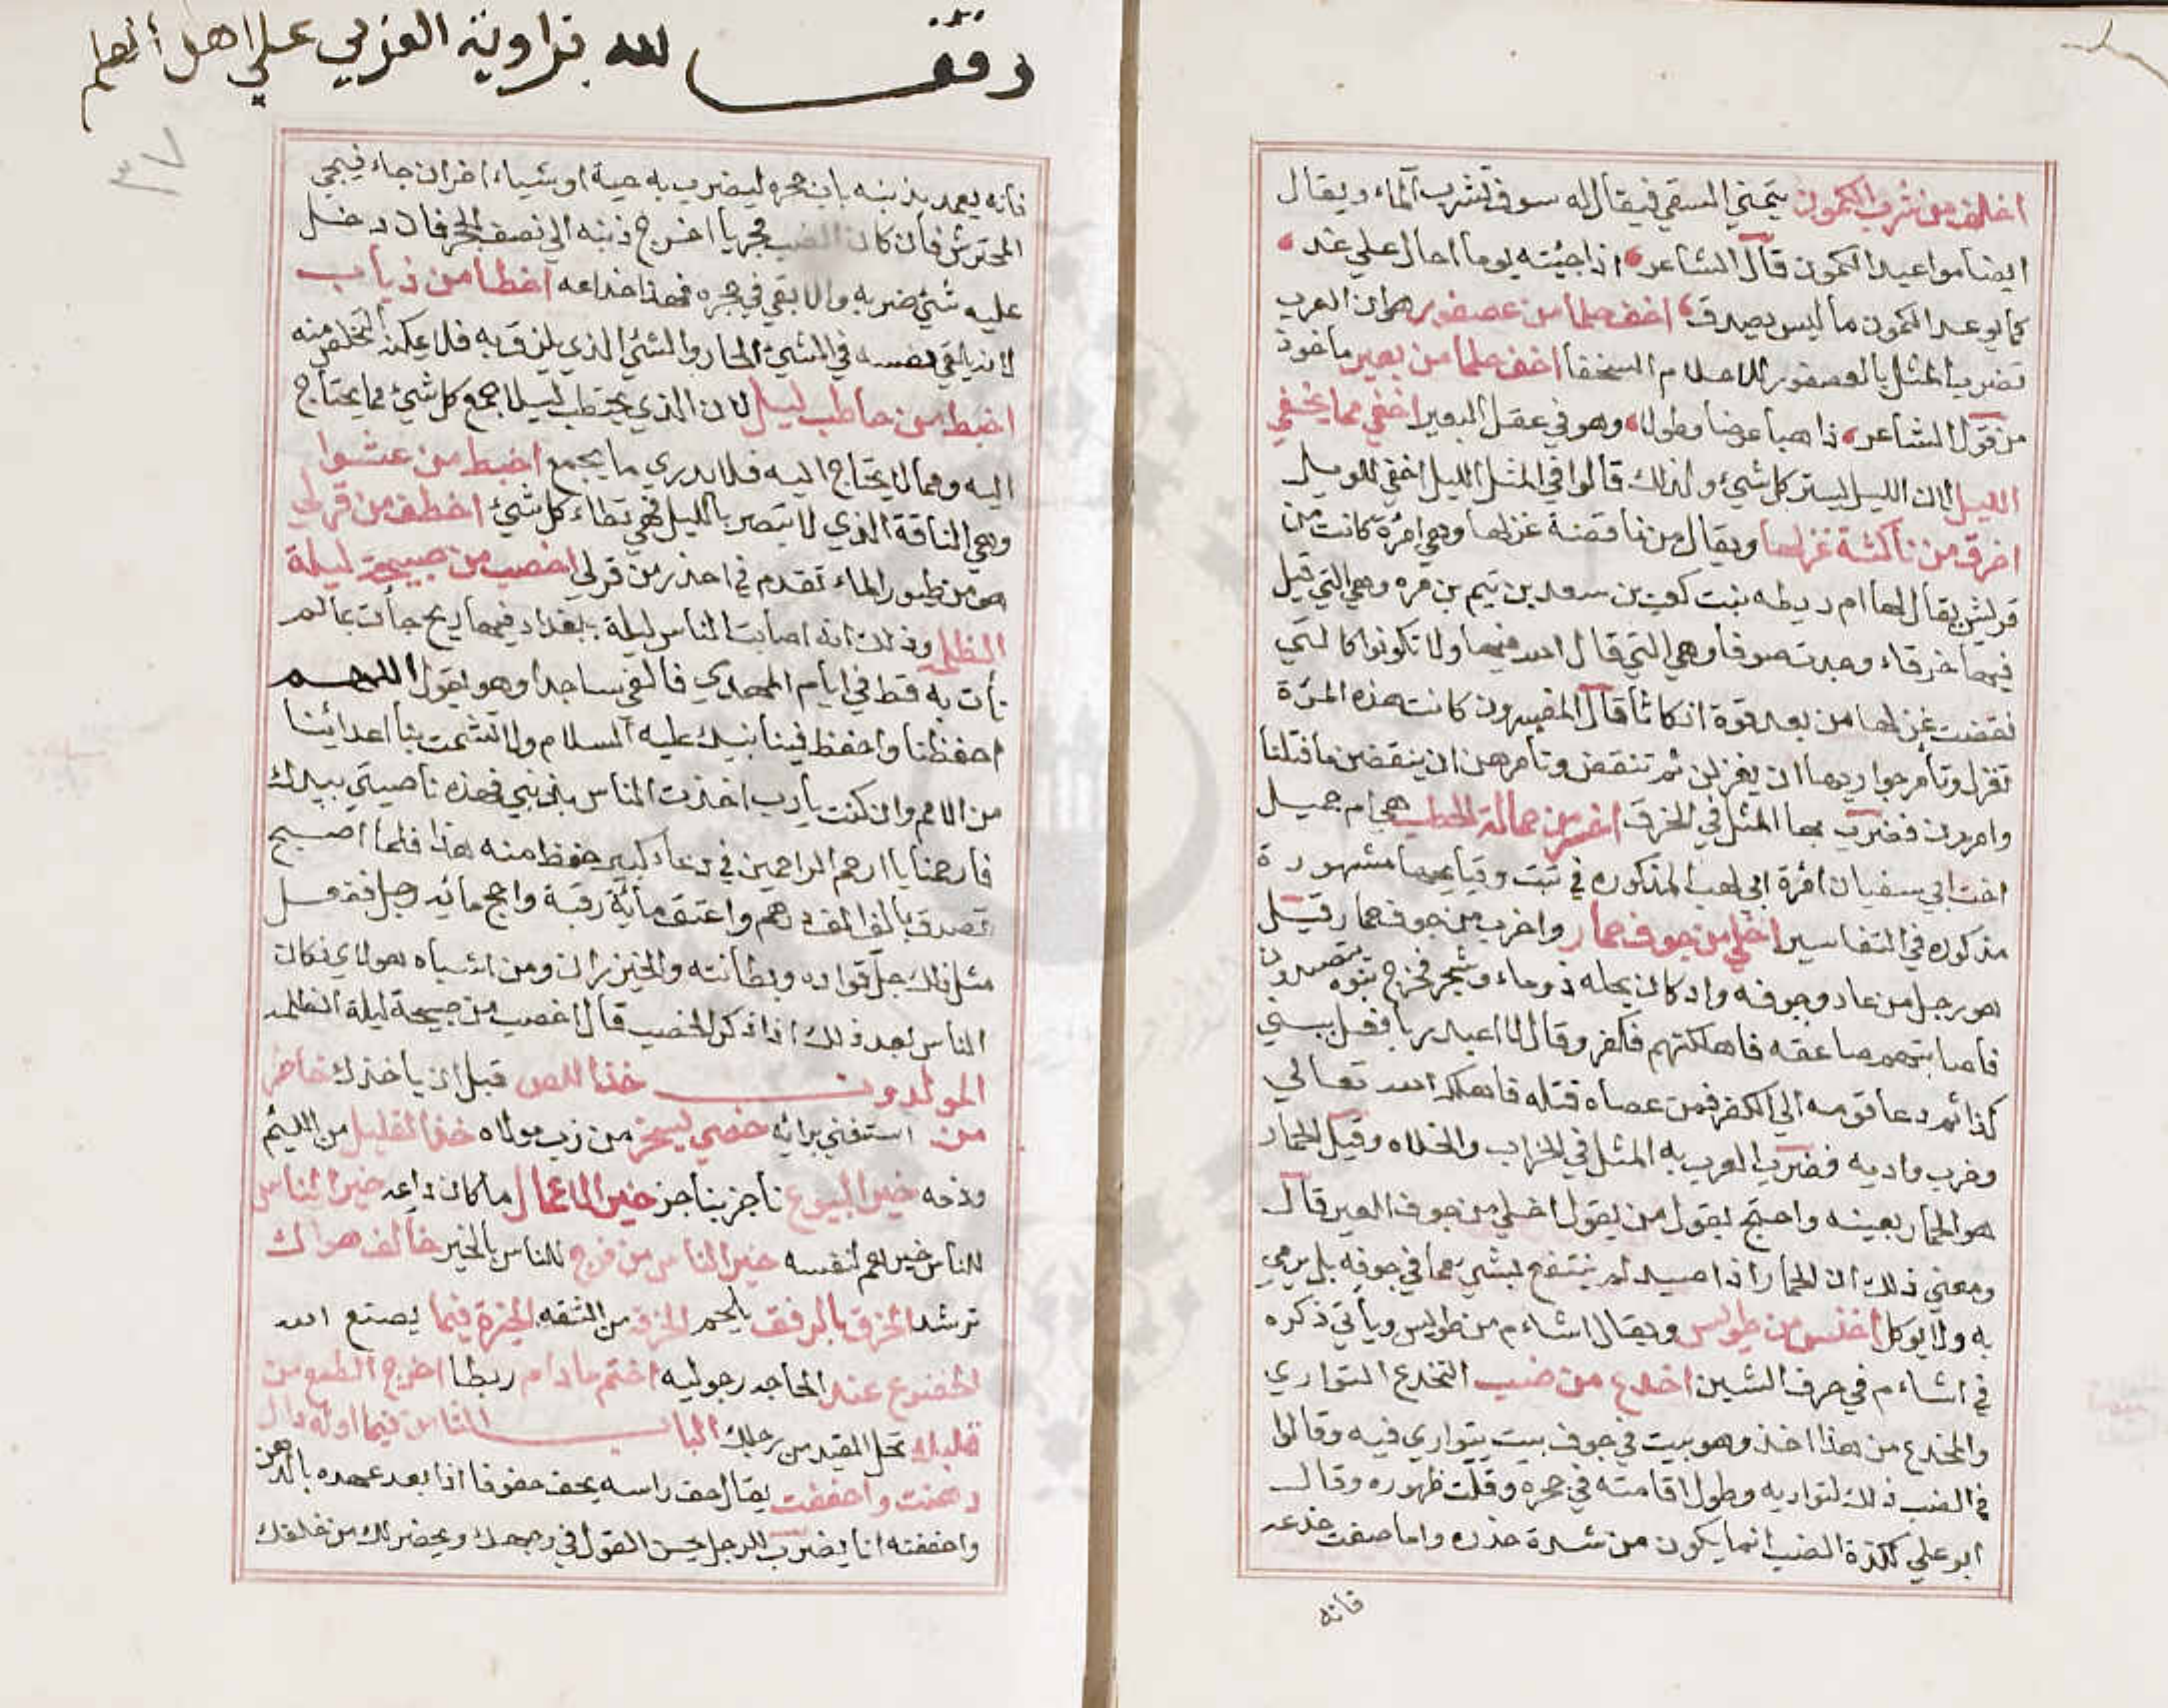 اخلف من شرب الكمون يتمني السقي فيقال له سوف تشرب الماء ويقال
ايضا مواعيد الكمون قال الشاعر اذا جئته يوما احال علي غد
كما يوعد الكمون ما ليس يصدق اخف حلما من عصفور هو ان العرب
تضرب المثل بالعصفور لاحلام السخفا اخف حلما من بعير ماخوذ
من قول الشاعر ذاهبا عرضا وطولا وهو في عقل البعير اخفي مما يخفي
الليل لان الليل يستر كل شيء ولذلك قالوا في المثل الليل اخفي للويل
اخرق من ناكثة غزلها ويقال من ناقضة غزلها وهي امرءة كانت من
قريش يقال لها ام ريطه بنت كعب بن سعد بن تيم بن مره وهي التي قيل
فيها خرقاء وجدت صوفا وهي التي قال الله فيها ولا تكونوا كالتي
نقضت غزلها من بعد قوة انكاثا قال المفسرون كانت هذه المرءة
تغزل وتأمر جواريها ان يغزلن ثم تنقض وتأمرهن ان ينقضن ما فتلنا
وامررن فضرب بها المثل في الخرق اخسر من حمالة الحطب هي ام جميل
اخت ابي سفيان امرءة ابي لهب المذكوره في تبت وقبايحها مشهورة
مذكوره في التفاسير اخلي من جوف حمار واخرب من جوف حمار قيل
هو رجل من عاد وجوفه واد كان يحله ذو ماء وشجر فخرج بنوه يتصيدون
فاصابتهم صاعقه فاهلكتهم فكفر وقال لا اعبد ربا فعل ببني
كذا ثم دعا قومه الي الكفر فمن عصاه قتله فاهلكه الله تعالي
وخرب واديه فضرب العرب به المثل في الخراب والخلاه وقيل الحمار
هو الحمار بعينه واحتج بقول من يقول اخلي من جوف العير قال
ومعني ذلك ان الحمار اذا صيد لم ينتفع بشيء مما في جوفه بل يرمي
به ولا يوكل اخنس من طويس ويقال اشاءم من طويس ويأتي ذكره
في اشاءم في حرف الشين اخدع من ضب التخدع التواري
والمخدع من هذا اخذ وهو بيت في جوف بيت يتواري فيه وقالوا
في الضب ذلك لتواريه وطول اقامته في جحره وقلت ظهوره وقال
ابو علي لكذة الضب انما يكون من شدة حذره واما صفت خدعه
فانه
وقف لله بزاوية العزبي علي اهل العلم
٣٧
فانه يعمد بذنبه باب جحره ليضرب به حية او شياء اخر ان جاء فيجي
المحترش فان كان الضب مجربا اخرج ذنبه الي نصف الجحر فان دخل
عليه شيء ضربه والا بقي في جحره فهذا خداعه اخطا من ذباب
لانه يلقي نفسه في الشيء الحار والشيء الذي يلزق به فلا يمكنه التخلص منه
اخبط من حاطب ليل لان الذي يحتطب ليلا يجمع كل شيء مما يحتاج
اليه ومما لا يحتاج اليه فلا يدري ما يجمع اخبط من عشوا
وهي الناقة الذي لا تبصر بالليل فهي تطاء كل شيء اخطف من قرلي
هو من طيور الماء تقدم في احذر من قرلي اخصب من صبيحة ليلة
الظلمه وذلك انه اصابت الناس ليلة ببغداد فيها ريح جأت بما لم
تأت به قط في ايام المهدي فالفي ساجدا وهو يقول اللهم
احفظنا واحفظ فينا نبيك عليه السلام ولا تشمت بنا اعدائنا
من الامم وان كنت يأرب اخذت الناس بذنبي فهذه ناصيتي بيدك
فارحمنا يا ارحم الراحمين في دعاء كبير حفظ منه هذا فلما اصبح
تصدق بالف الف درهم واعتق مأية رقبة واحج مأئه رجل ففعل
مثل ذلك جل قواده وبطانته والخيزران ومن اشباه هولاي فكان
الناس بعد ذلك اذا ذكر الخصب قال اخصب من صبيحة ليلة الظلمه
المولدون خذ اللص قبل ان ياخذك خاطر
من استغني برائه خصي يسخر من زب مولاه خذ القليل من اللئيم
وذمه خير البيوع ناجز بناجز خير الاعمال ما كان داعه خير الناس
للناس خيرهم لنفسه خير الناس من فرح للناس بالخير خالف هواك
ترشد الخرق بالرفق يلحم الخرقه من الثقه الخيرة فيما يصنع الله
الخضوع عند الحاجه رجوليه اختم ما دام رطبا اخرج الطمع من
قلبك تحل القيد من رجلك الباب الثامن فيما اوله دال
دهنت واحففت يقال حف راسه يحف حفوفا اذا بعد عهده بالدهن
واحففته انا يضرب للرجل يحسن القول في وجهك ويحضر لك من خلفك